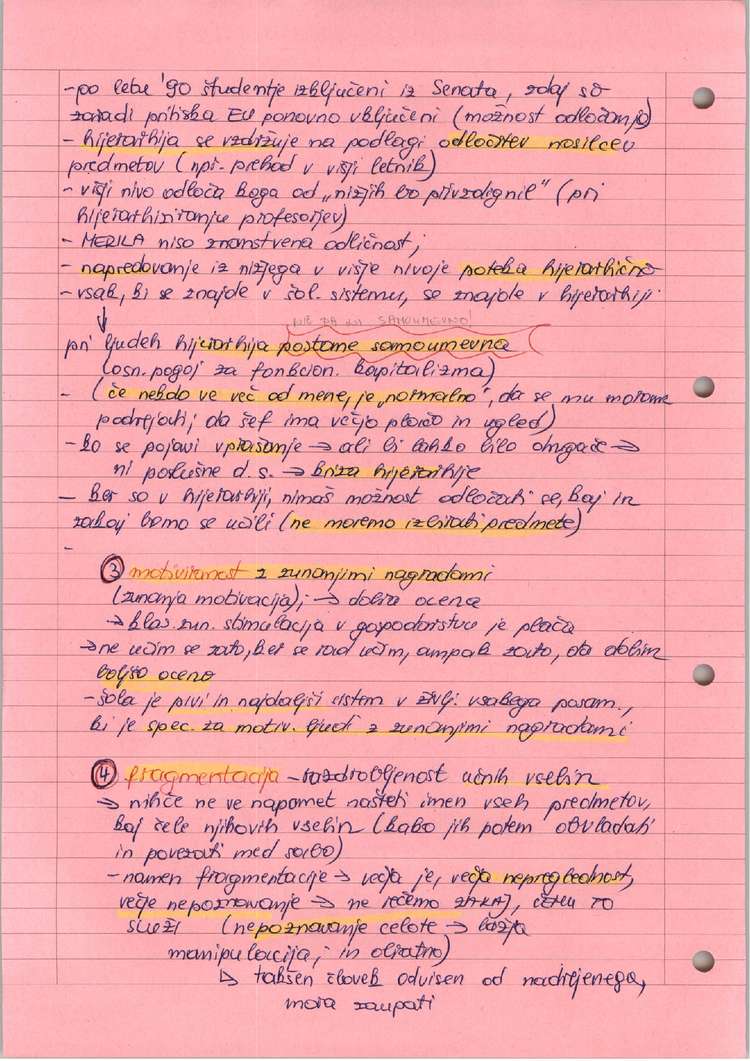 - po letu '90 študentje izključeni iz Senata, zdaj so
zaradi pritiska EU ponovno vključeni (možnost odločanja)
- hijerarhija se vzdržuje na podlagi odločitev nosilcev
predmetov (npr. prehod v višji letnik)
- višji nivo odloča koga od „nižjih bo privzdignil" (pri
hijerarhiziranju profesorjev)
- MERILA niso znanstvena odličnost;
- napredovanje iz nižjega v višje nivoje poteka hijerarhično
- vsak, ki se znajde v šol. sistemu, se znajde v hijerarhiji
NIČ DA NI SAMOUMEVNO!
pri ljudeh hijerarhija postane samoumevna
(osn. pogoj za funkcion. kapitalizma)
- (če nekdo ve več od mene, je „normalno", da se mu moramo
podrejati; da šef ima večjo plačo in ugled)
- ko se pojavi vprašanje → ali bi lahko bilo drugače →
ni poslušne d. s. → kriza hijerarhije
- ker so v hijerarhiji, nimaš možnost odločati se, kaj in
zakaj bomo se učili (ne moremo izbirati predmete)
-
③ motiviranost z zunanjimi nagradami
(zunanja motivacija); → dobra ocena
→ klas. zun. stimulacija v gospodarstvu je plača
→ ne učim se zato, ker se rad učim, ampak zato, da dobim
boljšo oceno
- šola je prvi in najdaljši sistem v življ. vsakega posam.,
ki je spec. za motiv. ljudi z zunanjimi nagradami
④ fragmentacija - razdrobljenost učnih vsebin
→ nihče ne ve napamet našteti imen vseh predmetov,
kaj šele njihovih vsebin (kako jih potem obvladati
in povezati med sabo)
- namen fragmentacije → večja je, večja nepreglednost,
večje nepoznavanje → ne rečemo ZAKAJ, ČEMU TO
SLUŽI (nepoznavanje celote → lažja
manipulacija; in obratno)
↳ takšen človek odvisen od nadrejenega,
mora zaupati